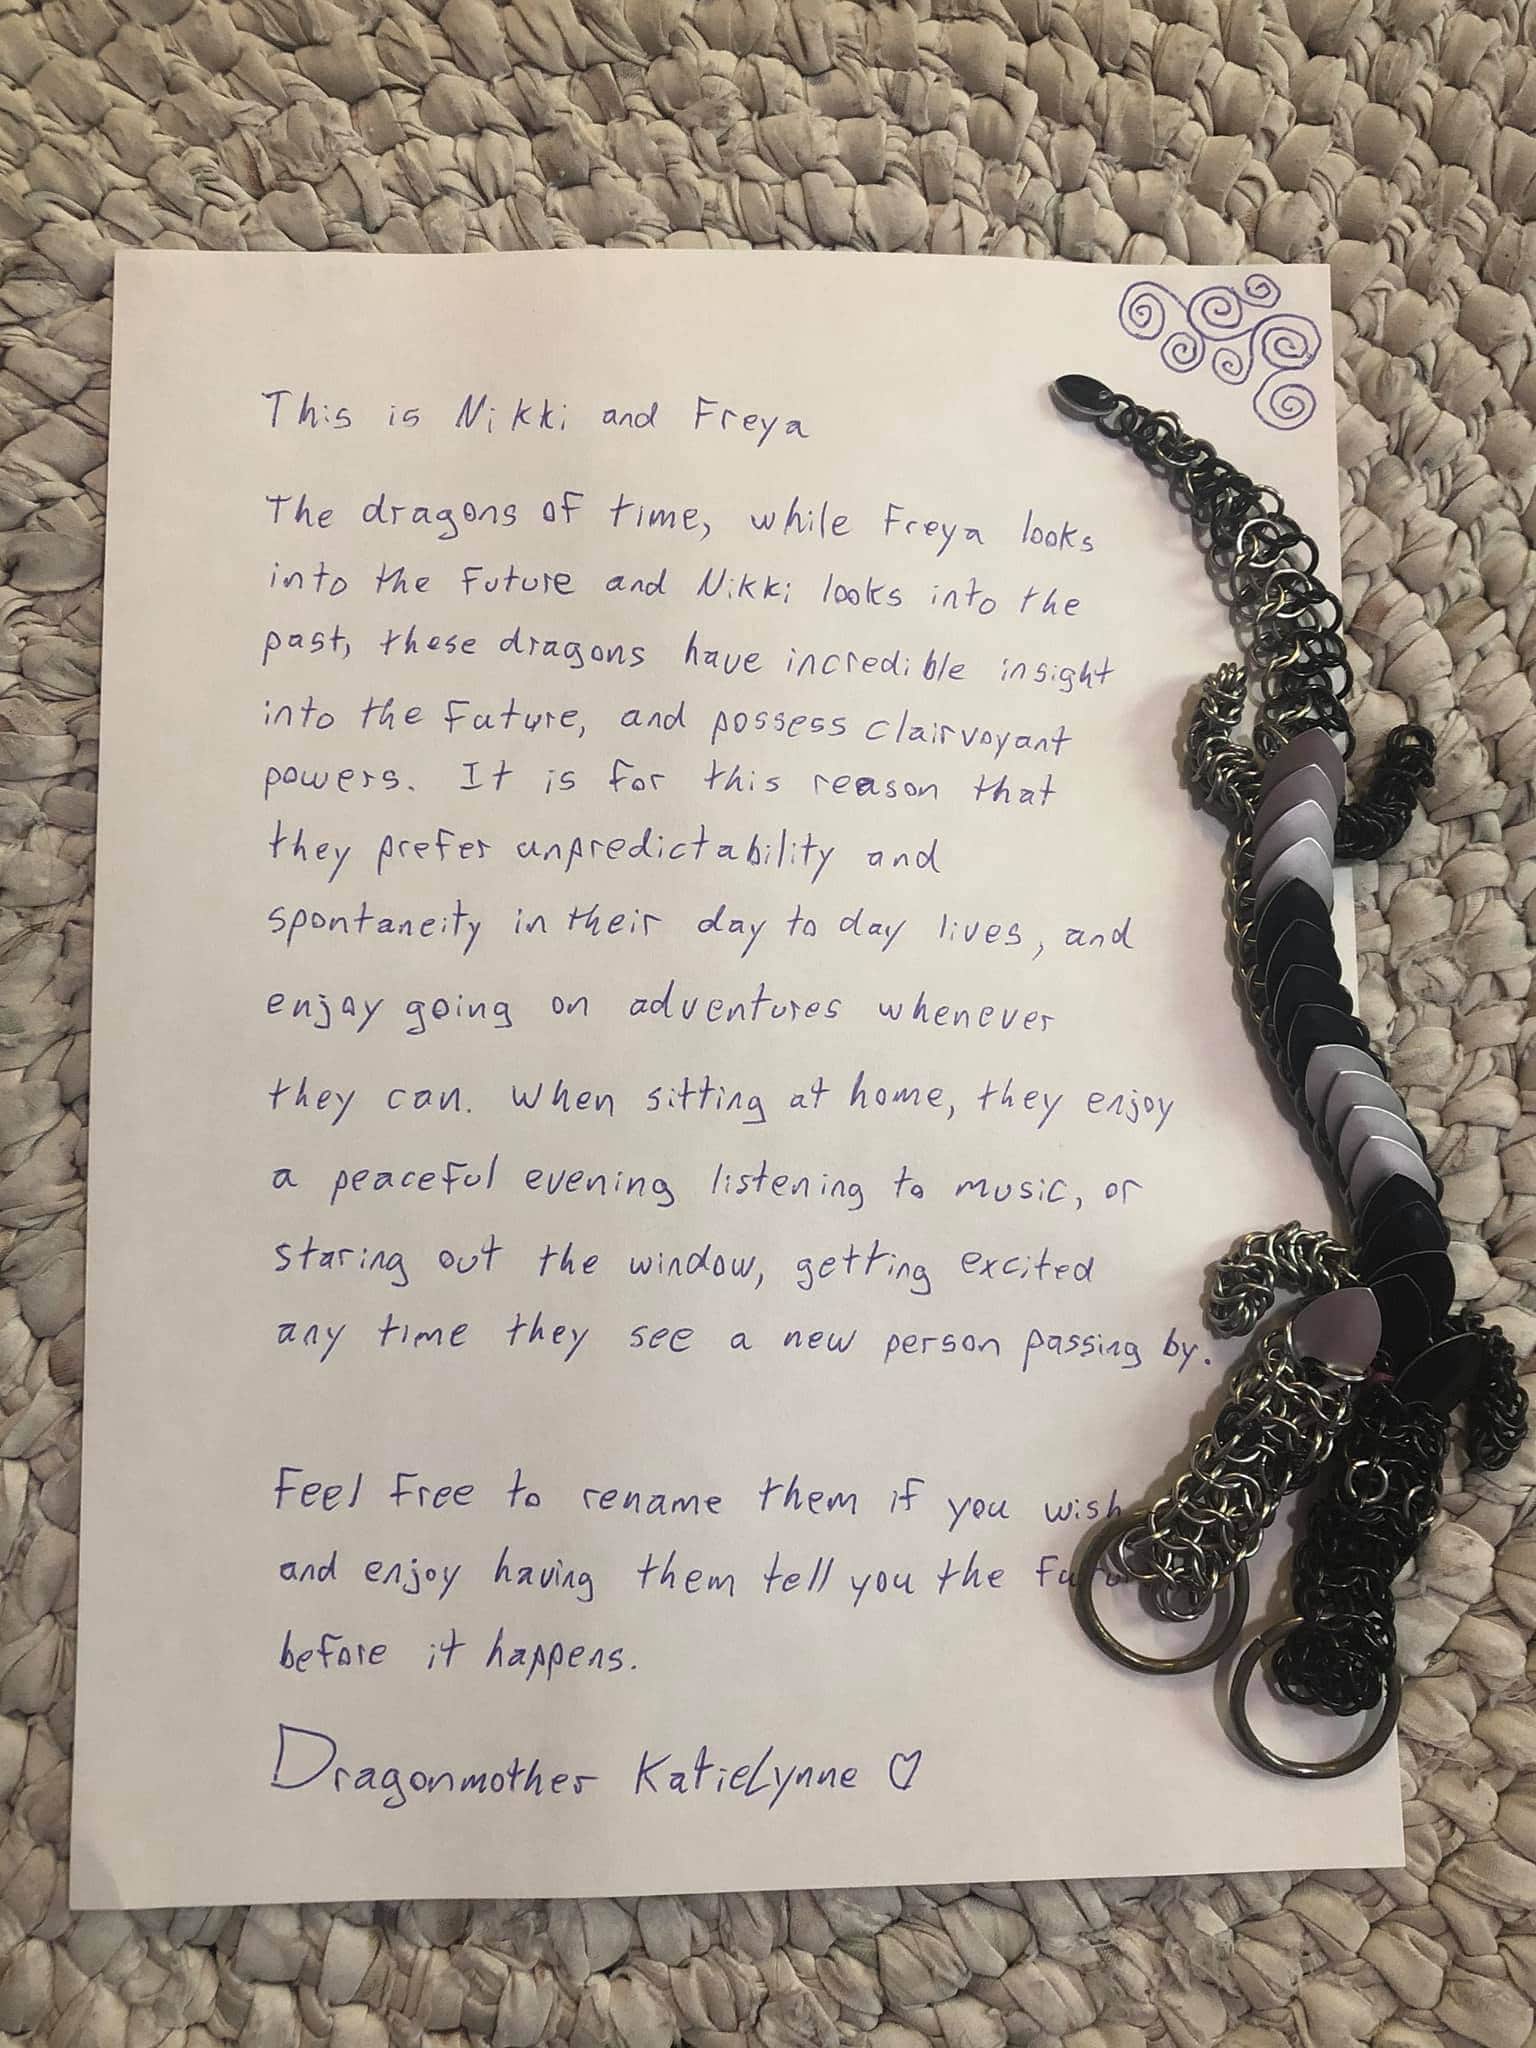 This is Nikki and Freya
The dragons of time, while Freya looks
into the future and Nikki looks into the
past, these dragons have incredible insight
into the future, and possess clairvoyant
powers. It is for this reason that
they prefer unpredictability and
spontaneity in their day to day lives, and
enjoy going on adventures whenever
they can. When sitting at home, they enjoy
a peaceful evening listening to music, or
staring out the window, getting excited
any time they see a new person passing by.
Feel free to rename them if you wish
and enjoy having them tell you the
before it happens.
Dragonmother KatieLynne ♡